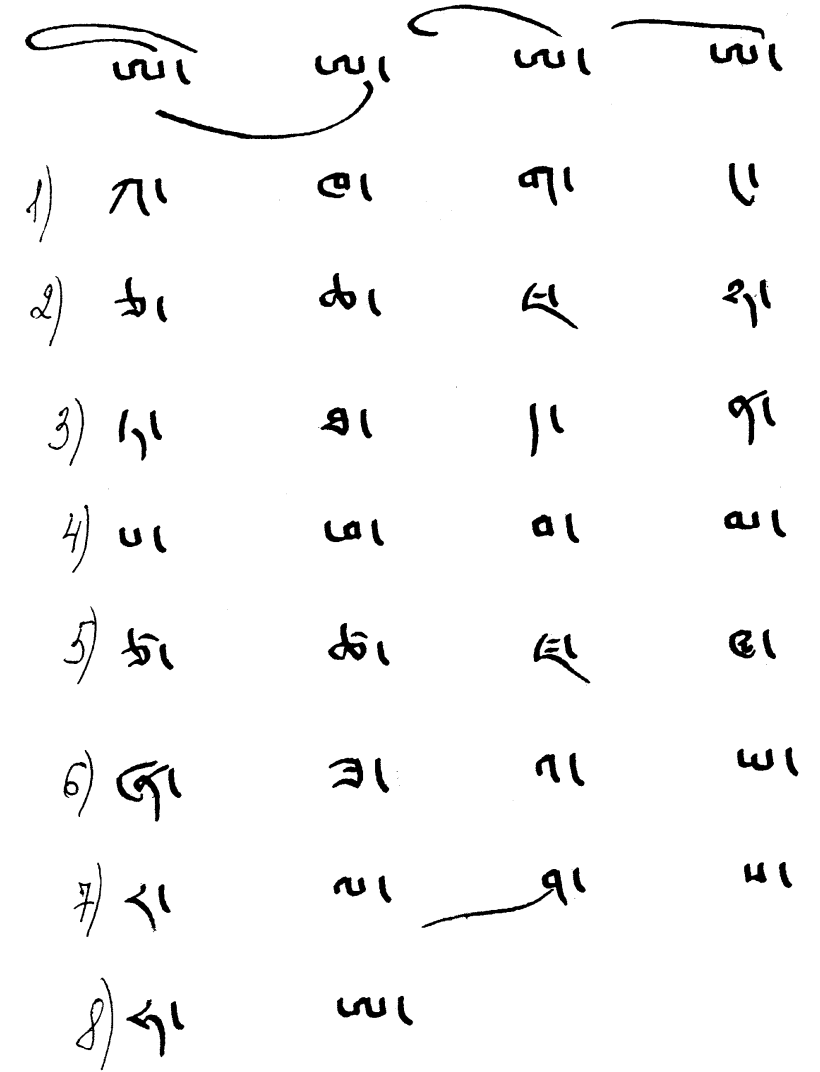 ཨི། ཨུ། ཨེ། ཨོ།
1) ཀ། ཁ། ག། ང།
2) ཅ། ཆ། ཇ། ཉ།
3) ཏ། ཐ། ད། ན།
4) པ། ཕ། བ། མ།
5) ཙ། ཚ། ཛ། ཝ།
6) ཞ། ཟ། འ། ཡ།
7) ར། ལ། ཤ། ས།
8) ཧ། ཨ།